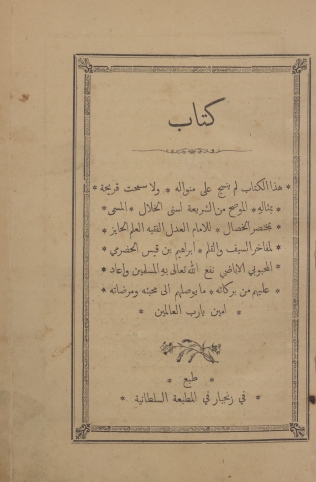 كتاب
* هذا الكتاب لم ينسج على منواله * ولا سمحت قريحة *
* بمثاله * الموضح من الشريعة لسنى الخلال * المسمى *
* مختصر الخصال * للامام العدل الفقيه العلم الحايز *
* لمفاخر السيف والقلم * ابراهيم بن قيس الحضرمي *
* المحبوبي الاباضي نفع الله تعالى به المسلمين واعاد *
* عليهم من بركاته * ما يوصلهم الى محبته ومرضاته *
* امين يارب العالمين *
* طبع *
* في زنجبار في المطبعة السلطانية *